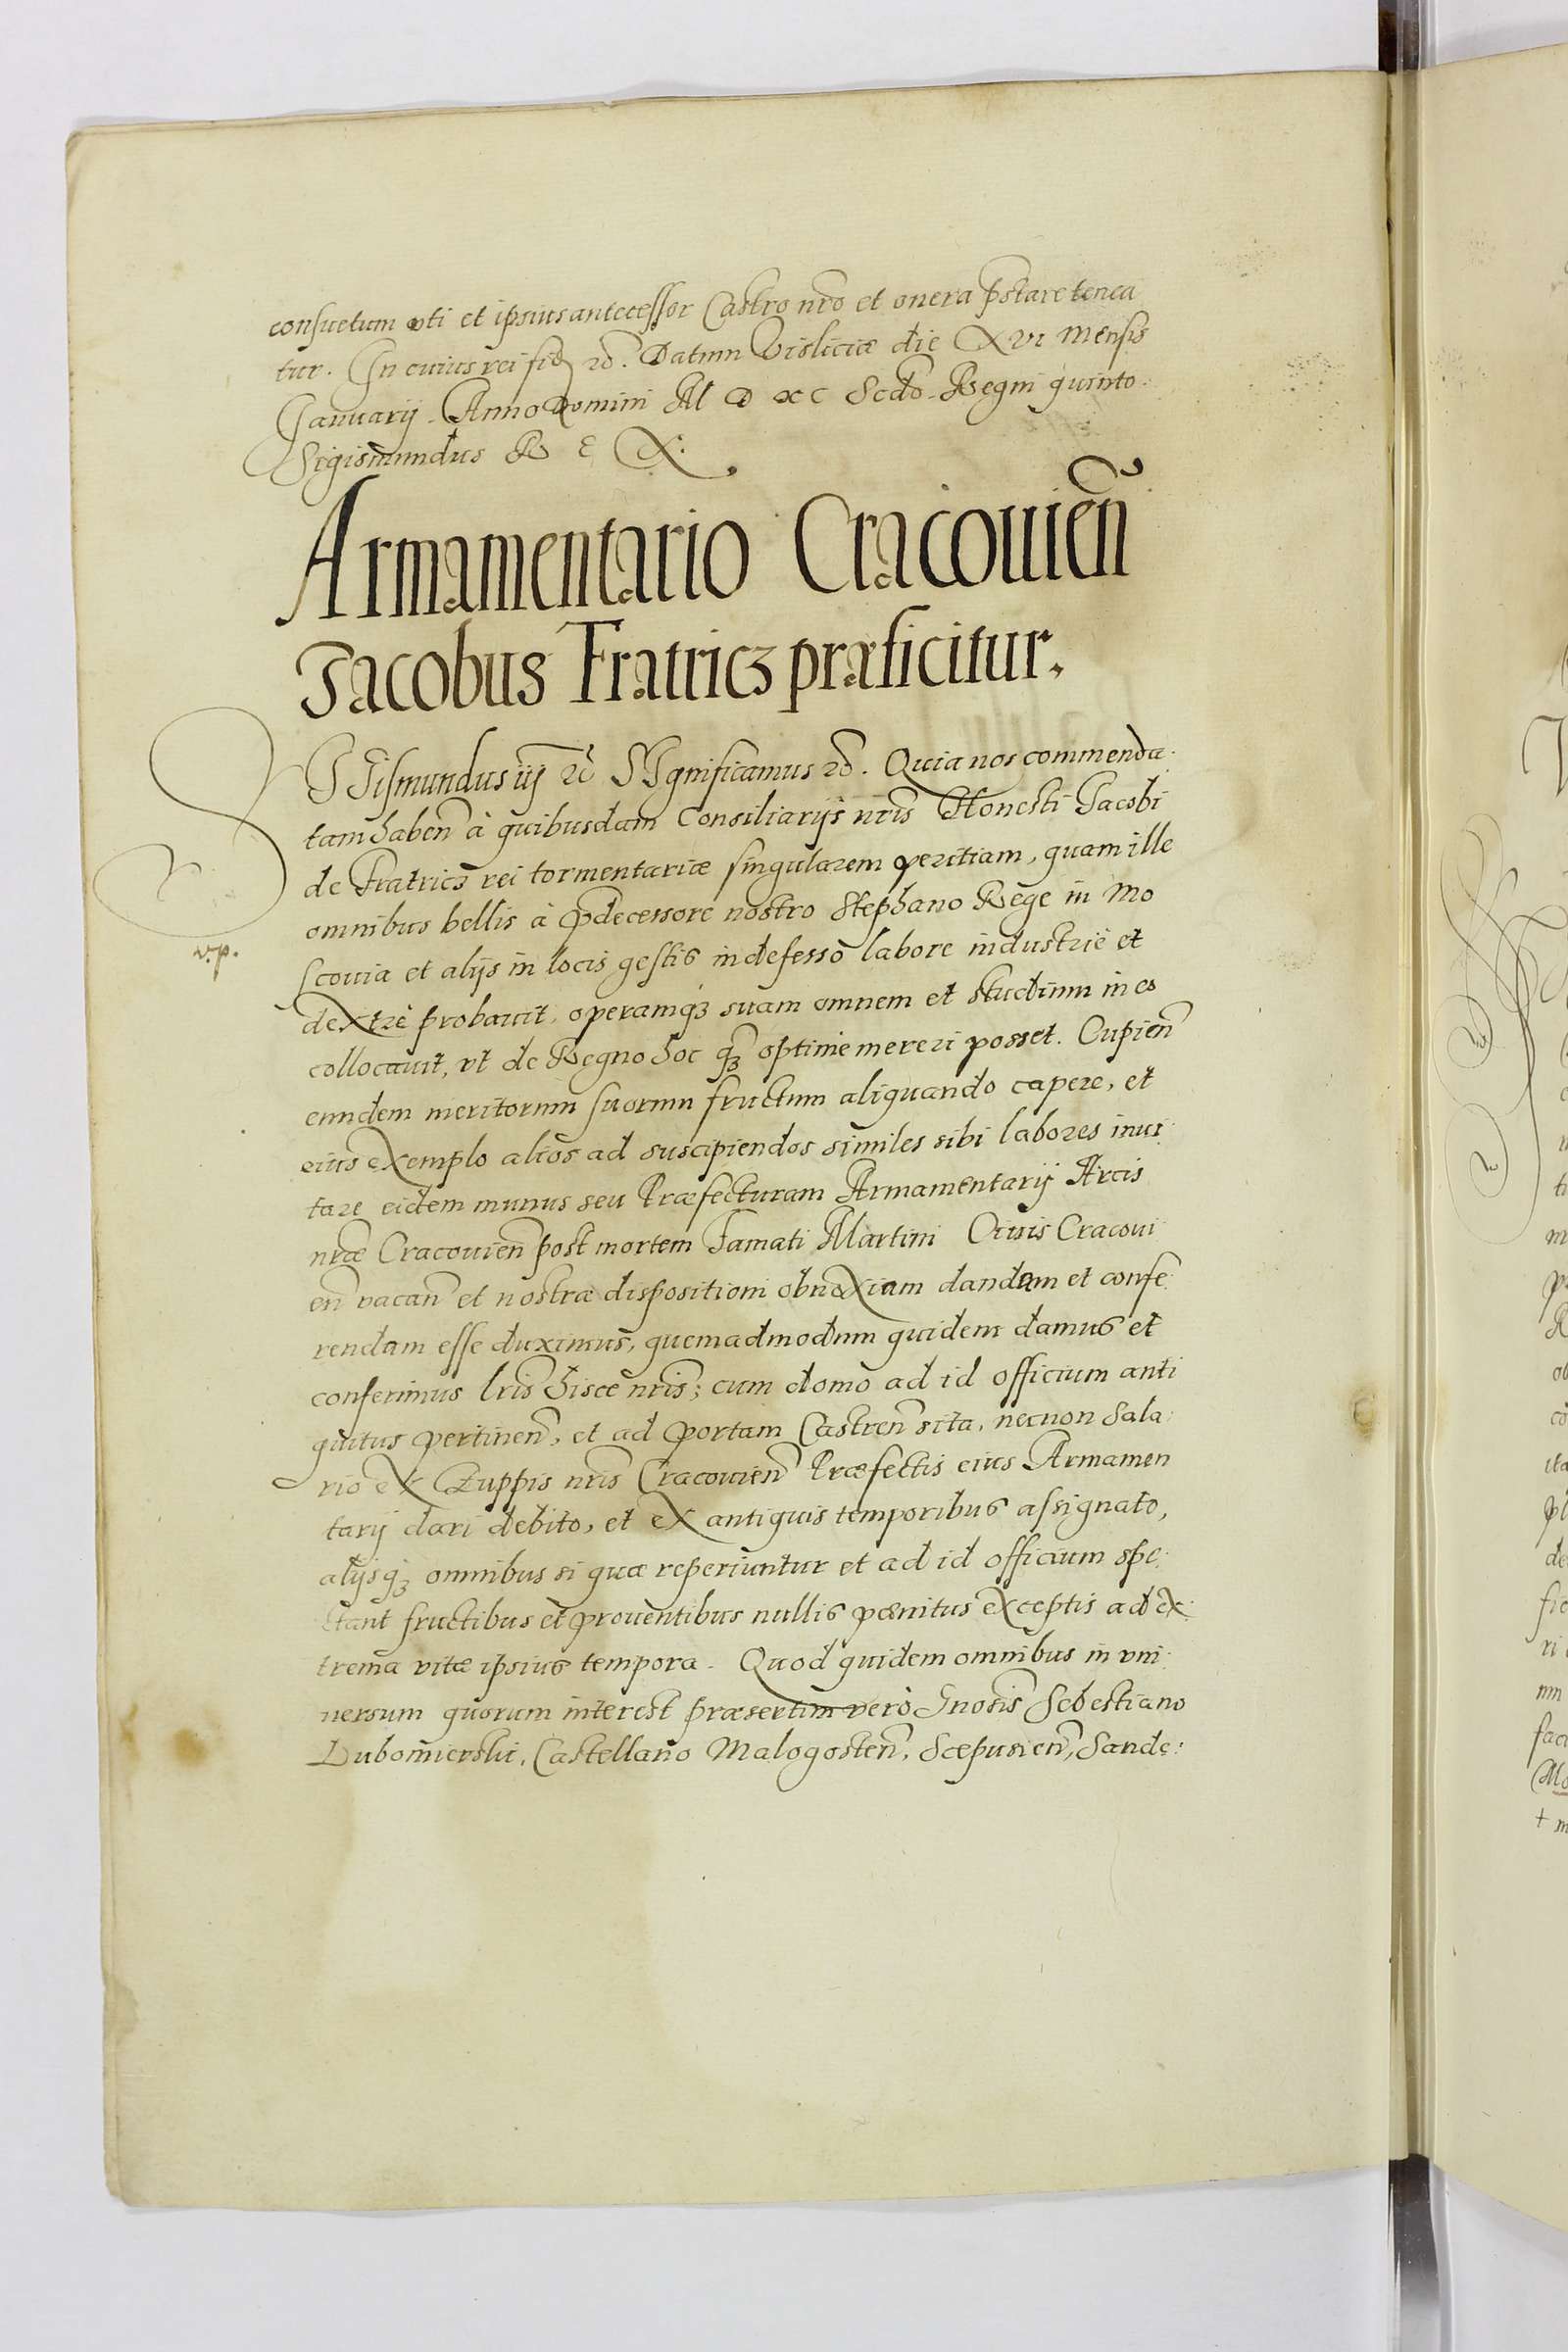 consuetum uti et ipsius antecessor Castro nro et onera pstare tenea
tur. In cuius rei fid ec. Datum Visliciæ die XVI Mensis
Januarij. Anno Domini M D XC Scdo. Regni quinto.
Sigismundus R E X.
Armamentario Cracouień
Jacobus Fratricz præficitur.
SIGismundus iij ec SIgnificamus ec. Quia nos commenda
tam habeñ à quibusdam Consiliarijs nris Honesti Jacobi
de Fratricz rei tormentariæ singularem peritiam, quam ille
omnibus bellis à pdecessore nostro Stephano Rege in Mo
v.p.
scouia et alijs in locis gestis indefesso labore industriè et
dextrè probauit, operamq3 suam omnem et studium in eo
collocauit, vt de Regno hoc q3 optime mereri posset. Cupień
eundem meritorum suorum fructum aliquando capere, et
eius exemplo alios ad suscipiendos similes sibi labores inui
tare eidem munus seu Præfecturam Armamentarij Arcis
nræ Cracouień post mortem Famati Martini Ciuis Cracoui
eñ vacañ et nostræ dispositioni obnoxiam dandam et confe
rendam esse duximus, quemadmodum quidem damus et
conferimus lris hisce nris; cum domo ad id officium anti
quitus pertineñ, et ad portam Castreñ sita, necnon Sala
rio ex Zuppis nris Cracouień Præfectis eius Armamen
tarij dari debito, et ex antiquis temporibus assignato,
alijsq3 omnibus si quæ reperiuntur et ad id officium spe
ctant fructibus et prouentibus nullis pœnitus exceptis ad ex
trema vitæ ipsius tempora. Quod quidem omnibus in vni
uersum quorum interest præsertim verò Gnosis Sebestiano
Lubomierski, Castellano Malogosteñ, Scepusień, Sande: